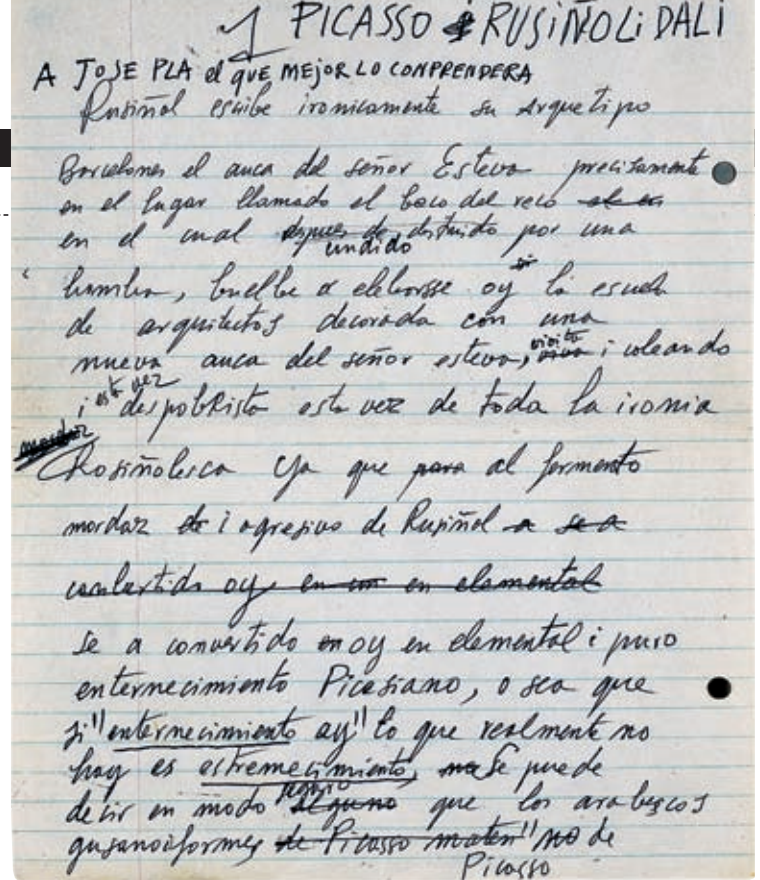 1 PICASSO i RUSIÑOL i DALI
A JOSE PLA el QUE MEJOR LO CONPRENDERA
Rusiñol escribe ironicamente su arquetipo
Barcelones el auca del señor Esteva precisamente
en el lugar llamado el baco del reco
en el cual despues de distruido por una
undido
bamba, buelbe a eleborsse oy la escuela
de arquitectos decorada con una
nueva auca del señor esteva, vivito i coleando
i esta vez despobRista esta vez de toda la ironia
mordaz
Rosiñolesca ya que para al fermento
mordaz de i agresivo de Rusiñol a se a
conbertido oy en un en elemental
se a convertido en oy en elemental i puro
enternecimiento Picasiano, o sea que
si "enternecimiento ay" lo que realmente no
hay es estremecimiento, no Se puede
desir en modo alguno que los arabescos
gusanoiformes de Picasso maten" no de
Picasso